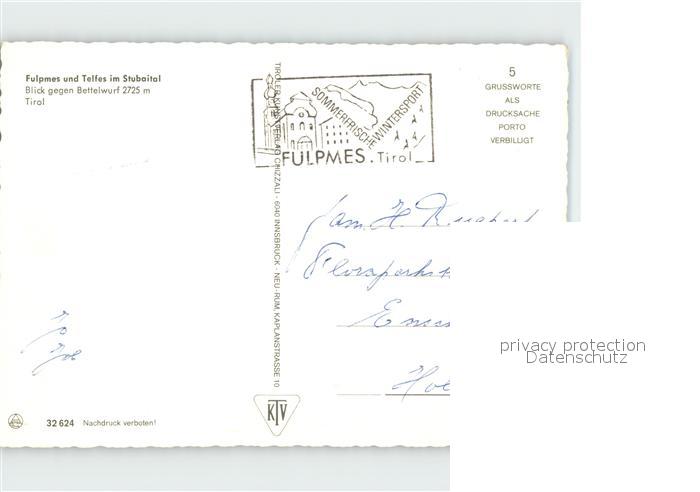 Fulpmes und Telfes im Stubaital
Blick gegen Bettelwurf 2725 m
Tirol
TIROLER KUNSTVERLAG CHIZZALI · 6040 INNSBRUCK - NEU-RUM, KAPLANSTRASSE 10
SOMMERFRISCHE
WINTERSPORT
FULPMES. Tirol
5
GRUSSWORTE
ALS
DRUCKSACHE
PORTO
VERBILLIGT
Fam. H.
privacy protection
Datenschutz
KTV
32 624 Nachdruck verboten!